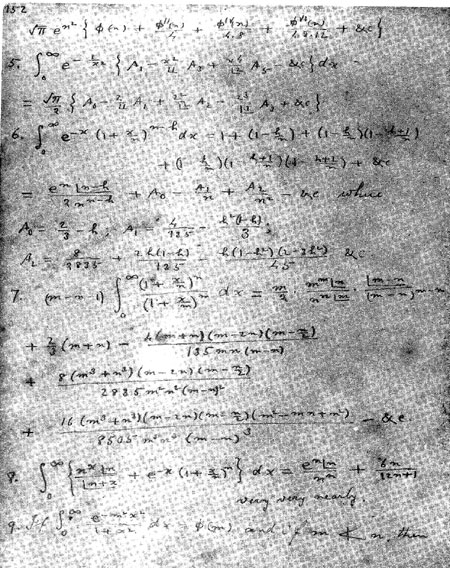 152
√π e^{n²} { φ(n) + φ''(n)/4 + φ^{IV}(n)/4.8 + φ^{VI}(n)/4.8.12 + &c }
5. ∫_0^∞ e^{-1/x²} { A_1 - x²/⌊4 A_3 + A_5 - &c } dx
= √π/2 { A_0 - A_1 + A_2 - A_3 + &c }
6. ∫_0^∞ e^{-x} (1 + x/n)^{n-h} dx - 1 + (1 - h/n) + (1 - h/n)(1 - (h+1)/n)
+ (1 - h/n)(1 - (h+1)/n)(1 - ) + &c
= e^n ⌊n-h / 2 n^{n-h} + A_0 - A_1/n + A_2/n² - &c where
A_0 = 2/3 - h; A_1 = 4/135 - h²(1-h)/3;
A_2 = 8/2835 + 2h(1-h)/135 - h(1-h²)(2-3h²)/45 &c
7. (m-n-1) ∫_0^∞ (1 + x/n)^n / (1 + x/m)^m dx = m/2 · m^m ⌊n / n^n ⌊m · ⌊m-n / (m-n)^{m-n}
+ 2/3 (m+n) - 4(m+n)(m-2n)(m-n/2) / 135 mn(m-n)
+ 8(m³+n³)(m-2n)(m-n/2) / 2835 m²n²(m-n)²
+ 16(m³+n³)(m-2n)(m-n/2)(m²-mn+n²) / 8505 m³n³(m-n)³ - &c
8. ∫_0^∞ { n^x ⌊n / ⌊n+x + e^{-x} (1 + x/n)^n } dx = e^n ⌊n / n^n + /12n+1
very very nearly.
9. If ∫_0^∞ e^{-m²x²} / 1+x² dx = φ(m), and if m < n, then